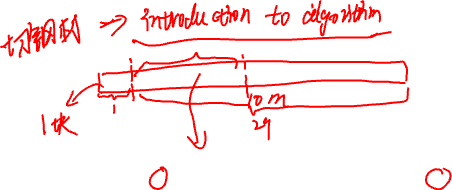 切钢 → introduction to algorithm
1
1块
10 m